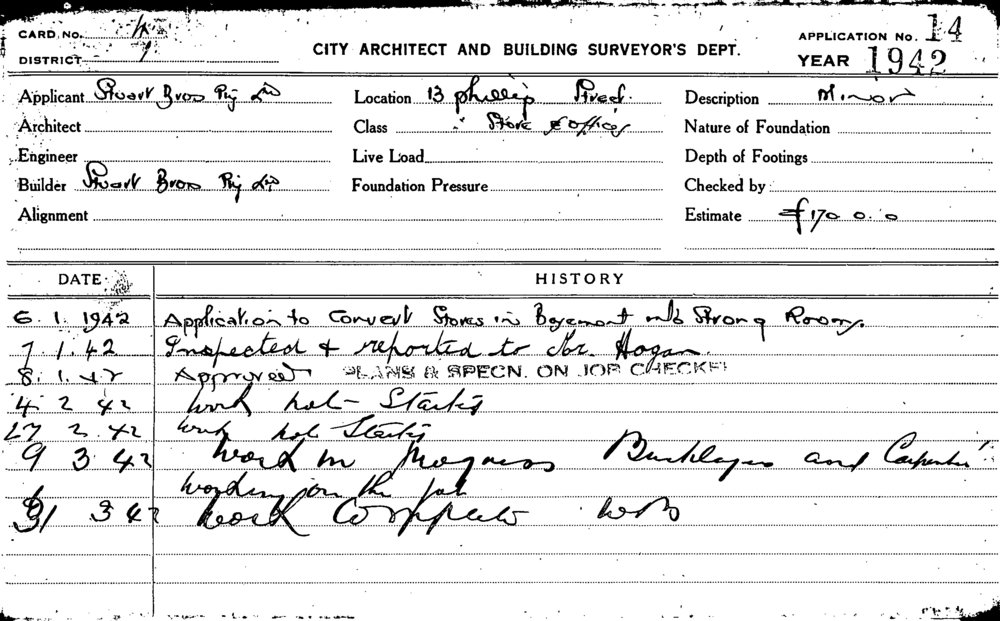 CARD No. 4
APPLICATION No. 14
CITY ARCHITECT AND BUILDING SURVEYOR'S DEPT.
DISTRICT
YEAR 1942
Applicant Stuart Bros Pty Ltd Location 13 Phillip Street. Description Minor
Architect Class Store & offices Nature of Foundation
Engineer Live Load Depth of Footings
Builder Stuart Bros Pty Ltd Foundation Pressure Checked by
Alignment Estimate £170 0.0
DATE HISTORY
6.1.1942 Application to Convert Stores in Basement into Strong Room.
7.1.42 Inspected & reported to Mr. Hogan.
8.1.42 Approved PLANS & SPECN. ON JOB CHECKED
4 2 42 Work not Started
27 2 42 Work not Started
9 3 42 Work in Progress Bricklayers and Carpenters
working on the job
31 3 42 Work Complete